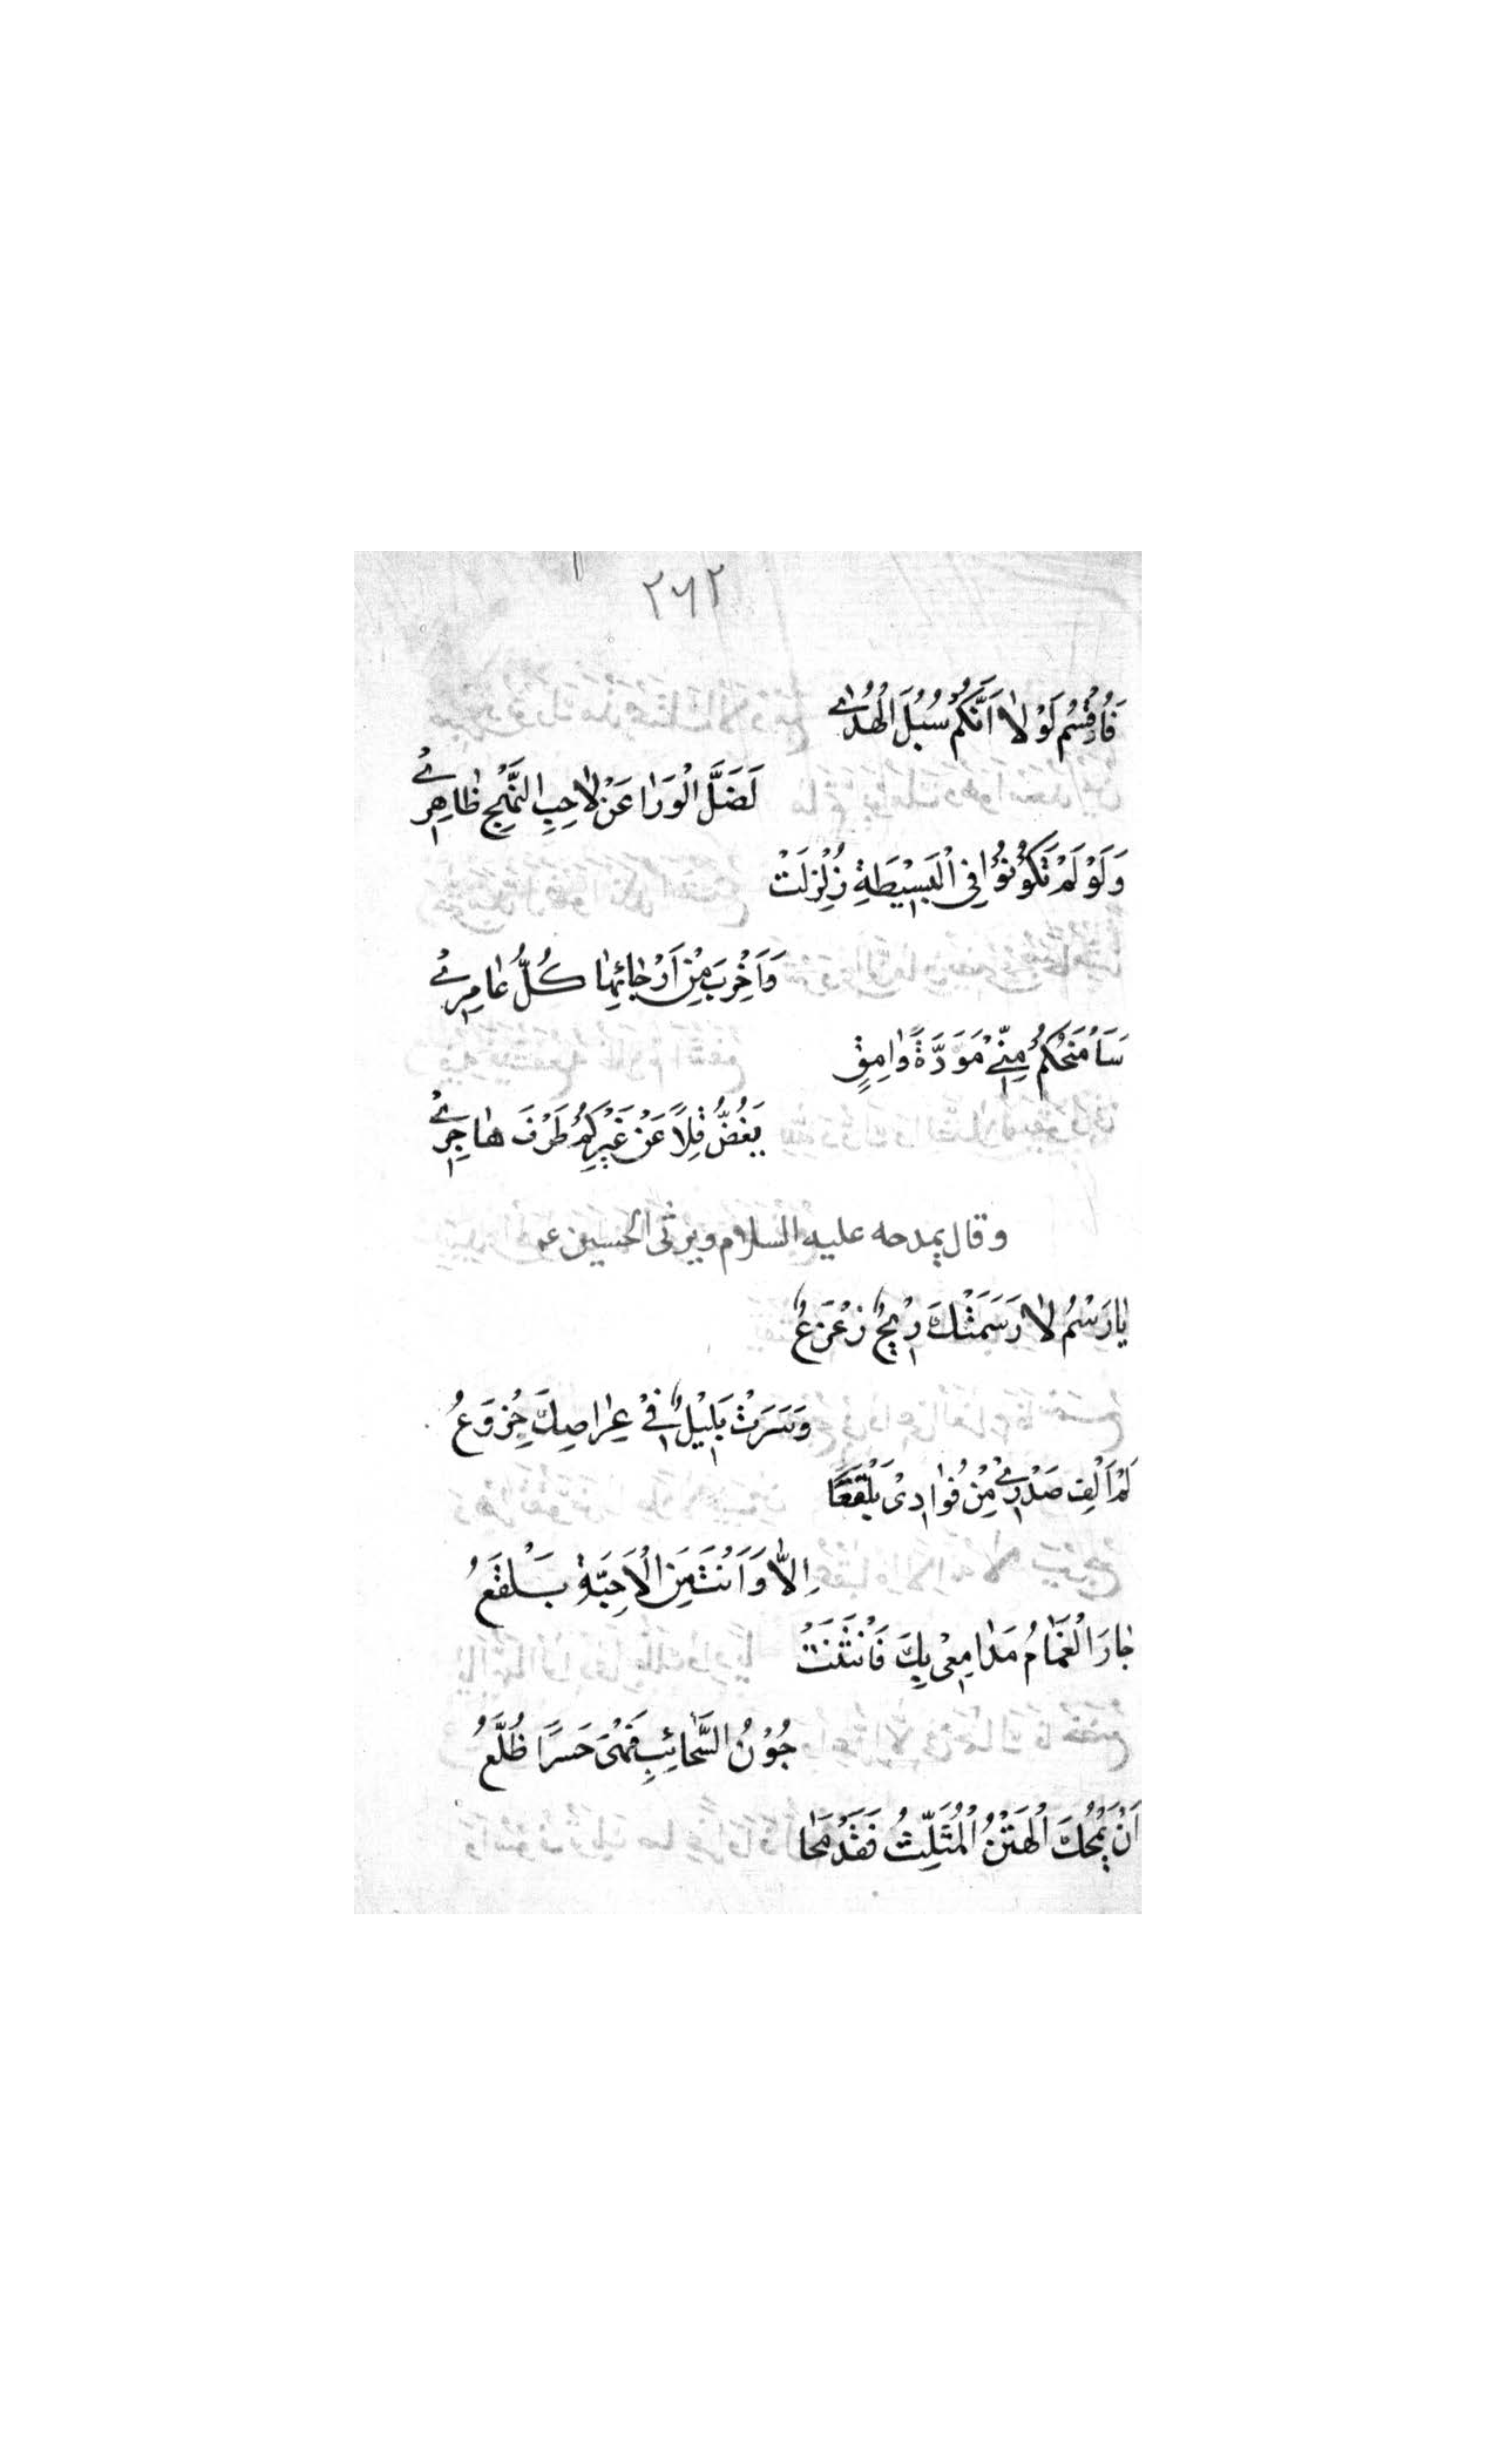 ٢٦٢
فَاُقْسِمُ لَوْلٰا اَنَّكُمْ سُبُلَ الْهُدٰى
لَضَلَّ الْوَرٰا عَنْ لٰاحِبِ النَّهْجِ ظٰاهِرِيْ
وَلَوْ لَمْ تَكُوْنُوْا فِي الْبَسِيْطَةِ زُلْزِلَتْ
وَاَخْرَبَ مِنْ اَرْجٰائِهٰا كُلُّ عٰامِرِيْ
سَاَمْنَحُكُمْ مِنِّيْ مَوَدَّةً وٰامِقٍ
يَغُضُّ قِلاً عَنْ غَيْرِكُمْ طَرْفَ هٰاجِرِيْ
وقال يمدحه عليه السلام ويرثى الحسين ع
يٰا رَسْمُ لٰا رَسَمَتْكَ رِيْحٌ زَعْزَعُ
وَسَرَتْ بَلِيْلٌ فِيْ عِرٰاصِكَ خِرْوَعُ
لَمْ اَلْفِ صَدْرِيْ مِنْ فُوٰادِيْ بَلْقَعًا
اِلاّٰ وَاَنْتَ مِنَ الْاَحِبَّةِ بَلْقَعُ
جٰارَ الْغَمٰامُ مَدٰامِعِيْ بِكَ فَانْثَنَتْ
جُوْنُ السَّحٰائِبِ فَهْىَ حَسَرًا ظُلَّعُ
اَنْ يَمْحُكَ الْهَتِنُ الْمُثَلِّثُ فَقَدْ مَحٰا